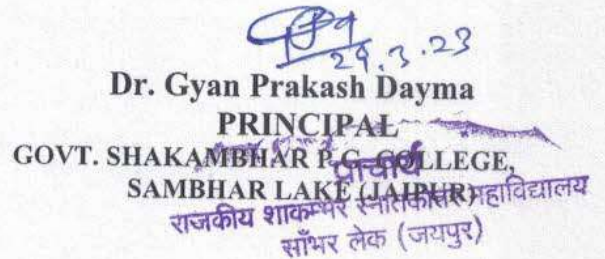 29.3.23
Dr. Gyan Prakash Dayma
PRINCIPAL
GOVT. SHAKAMBHAR P.G. COLLEGE,
प्राचार्य
SAMBHAR LAKE (JAIPUR)
राजकीय शाकम्भर स्नातकोत्तर महाविद्यालय
साँभर लेक (जयपुर)